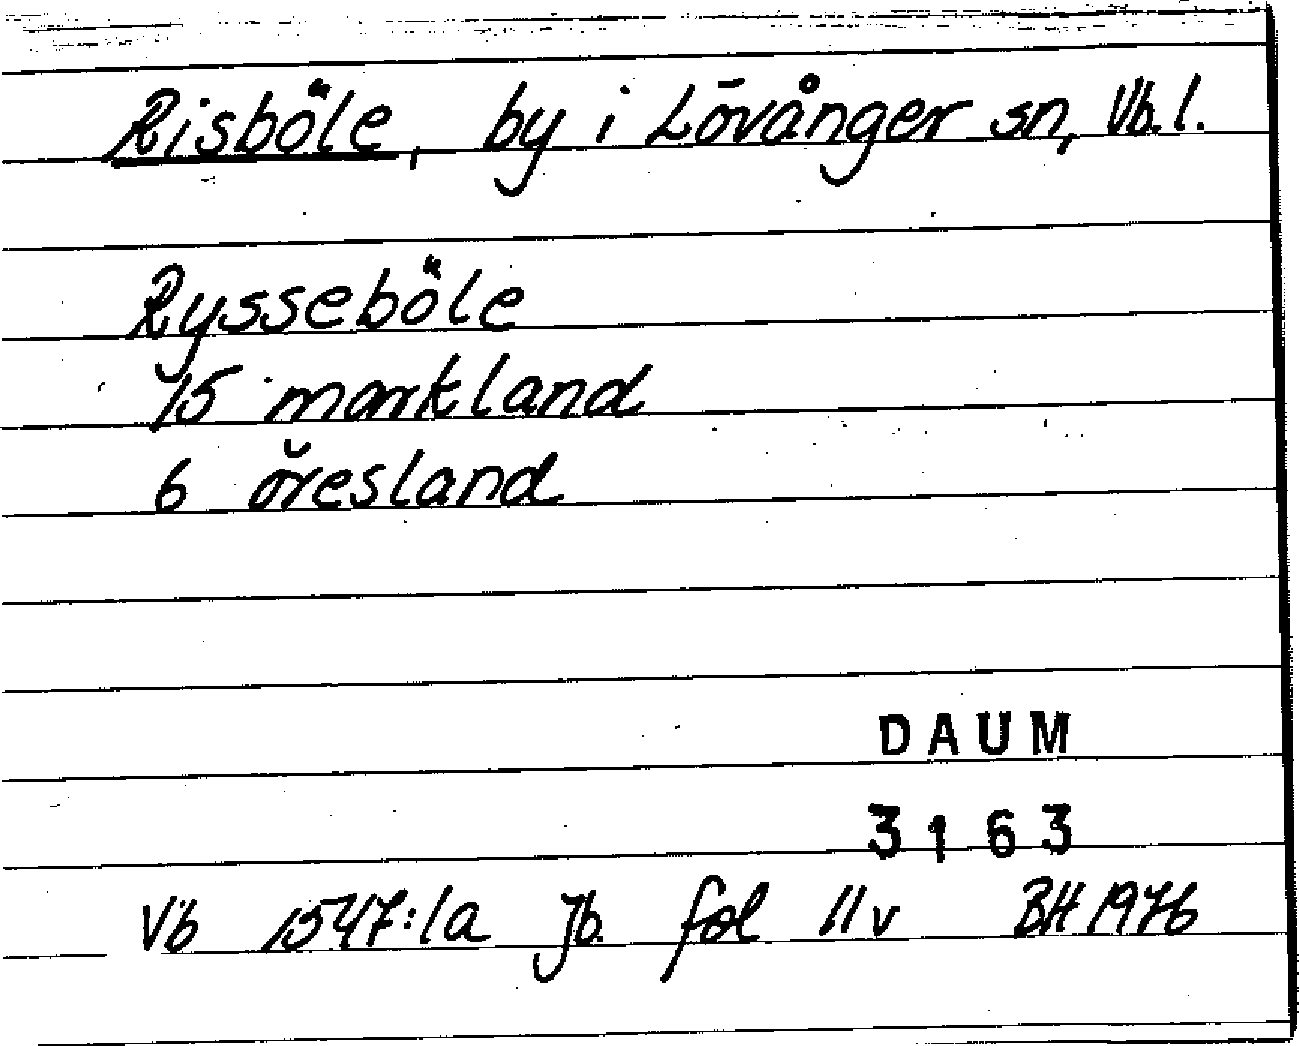 Risböle, by i Lövånger sn, Vb. l.
Rysseböle
15 markland
6 öresland
DAUM
3163
Vb 1547:1a Jb. fol 11v BH 1976